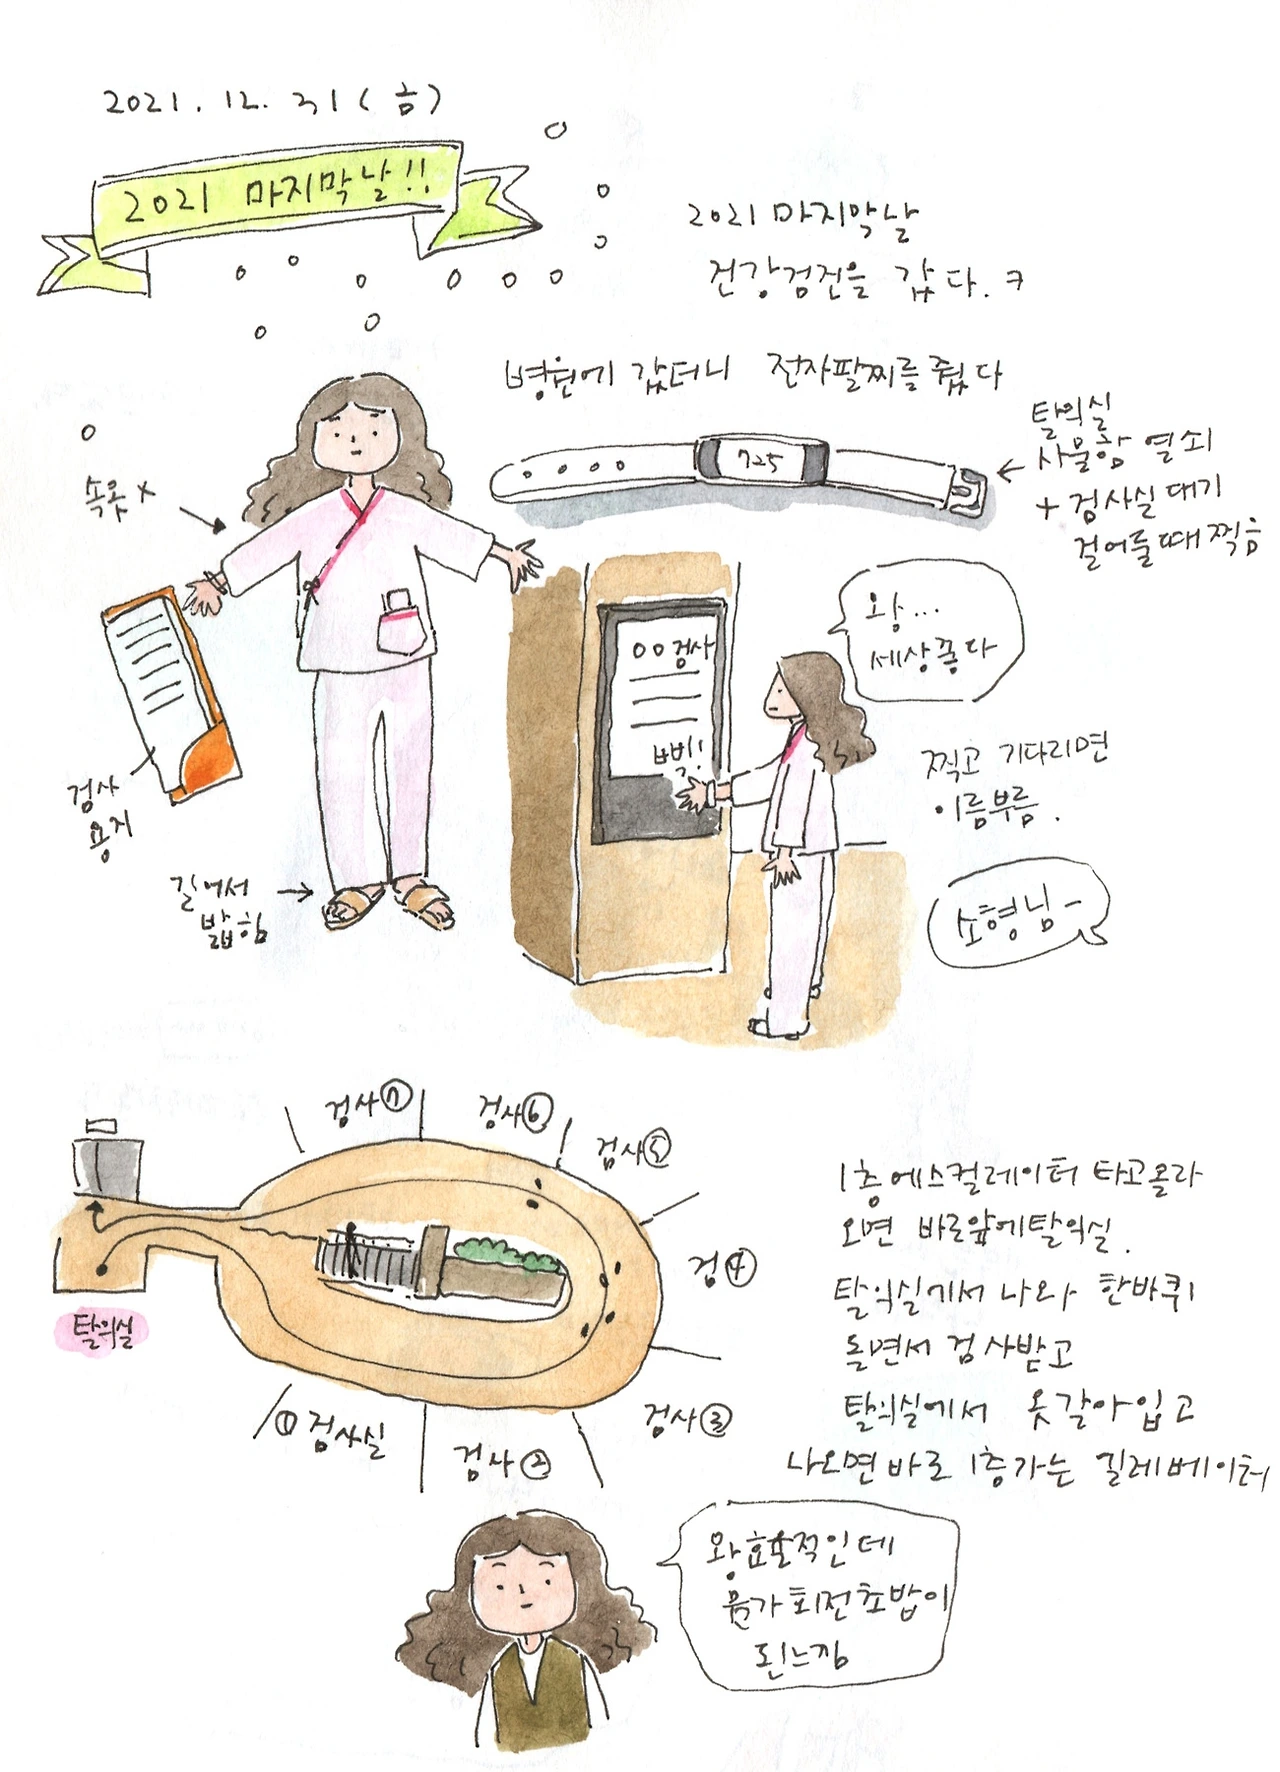 2021. 12. 31 (금)
2021 마지막날!!
2021 마지막날
건강검진을 갔다. ㅋ
병원에 갔더니 전자팔찌를 줬다
725
탈의실
사물함 열쇠
+ 검사실 대기
걸어둘때 찍음
속옷 X
검사
용지
길어서
밟힘
OO검사
삑!
와...
세상좋다
찍고 기다리면
이름부름.
소형님-
검사⑦
검사⑥
검사⑤
검④
검사③
검사②
① 검사실
탈의실
1층 에스컬레이터 타고올라
오면 바로앞에탈의실.
탈의실에서 나와 한바퀴
돌면서 검사받고
탈의실에서 옷갈아입고
나오면 바로 1층가는 엘레베이터
왕효율적인데
뭔가 회전초밥이
된느낌